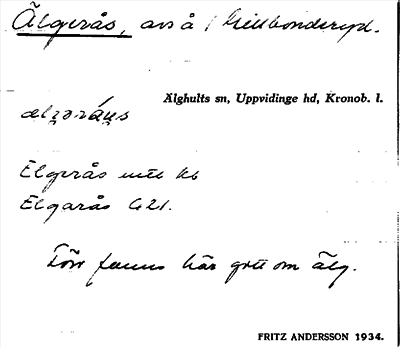 Älgerås, avs å Grillbonderyd.
Älghults sn, Uppvidinge hd, Kronob. l.
Elgerås
Elgarås G21.
Förr fanns här gott om älg.
FRITZ ANDERSSON 1934.